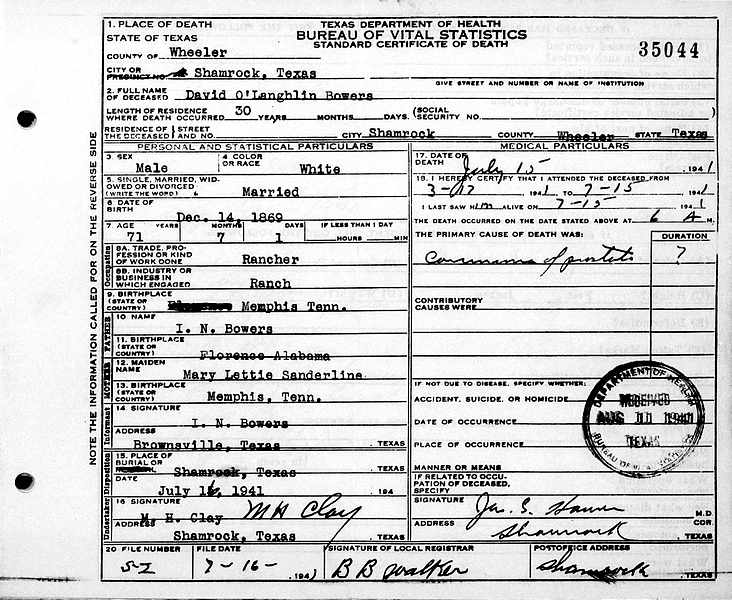 NOTE THE INFORMATION CALLED FOR ON THE REVERSE SIDE
TEXAS DEPARTMENT OF HEALTH
BUREAU OF VITAL STATISTICS
STANDARD CERTIFICATE OF DEATH
35044
1. PLACE OF DEATH
STATE OF TEXAS
COUNTY OF Wheeler
CITY OR PRECINCT NO. Shamrock, Texas
GIVE STREET AND NUMBER OR NAME OF INSTITUTION
2. FULL NAME OF DECEASED David O'Langhlin Bowers
LENGTH OF RESIDENCE WHERE DEATH OCCURRED 30 YEARS MONTHS DAYS. (SOCIAL SECURITY NO.
RESIDENCE OF THE DECEASED STREET AND NO. CITY Shamrock COUNTY Wheeler STATE Texas
PERSONAL AND STATISTICAL PARTICULARS
3. SEX Male
4. COLOR OR RACE White
5. SINGLE, MARRIED, WIDOWED OR DIVORCED (WRITE THE WORD) Married
6. DATE OF BIRTH Dec. 14, 1869
7. AGE YEARS MONTHS DAYS IF LESS THAN 1 DAY
71 7 1 HOURS MIN
Occupation
8A. TRADE, PROFESSION OR KIND OF WORK DONE Rancher
8B. INDUSTRY OR BUSINESS IN WHICH ENGAGED Ranch
9. BIRTHPLACE (STATE OR COUNTRY) Memphis Tenn.
FATHER
10 NAME I. N. Bowers
11. BIRTHPLACE (STATE OR COUNTRY) Florence Alabama
MOTHER
12. MAIDEN NAME Mary Lettie Sanderline
13. BIRTHPLACE (STATE OR COUNTRY) Memphis, Tenn.
Informant
14 SIGNATURE I. N. Bowers
ADDRESS Brownsville, Texas , TEXAS
Disposition
15. PLACE OF BURIAL OR Shamrock, Texas , TEXAS
DATE July 16, 1941 194
Undertaker
16 SIGNATURE M. H. Clay M H Clay
ADDRESS Shamrock, Texas , TEXAS
MEDICAL PARTICULARS
17. DATE OF DEATH July 15 , 1941
18. I HEREBY CERTIFY THAT I ATTENDED THE DECEASED FROM
3-17 1941 TO 7-15 1941
I LAST SAW HIM ALIVE ON 7-15 1941
THE DEATH OCCURRED ON THE DATE STATED ABOVE AT 6 A M.
THE PRIMARY CAUSE OF DEATH WAS: DURATION
of prostate ?
CONTRIBUTORY CAUSES WERE:
IF NOT DUE TO DISEASE, SPECIFY WHETHER:
ACCIDENT, SUICIDE, OR HOMICIDE
DATE OF OCCURRENCE
PLACE OF OCCURRENCE
MANNER OR MEANS
IF RELATED TO OCCUPATION OF DECEASED, SPECIFY
DEPARTMENT OF HEALTH
RECEIVED
AUG 1941
TEXAS
BUREAU OF VITAL STATISTICS
SIGNATURE M.D.
ADDRESS Shamrock COR. , TEXAS
20 FILE NUMBER FILE DATE SIGNATURE OF LOCAL REGISTRAR POSTOFFICE ADDRESS
7-16- 1941 B B Walker Shamrock , TEXAS